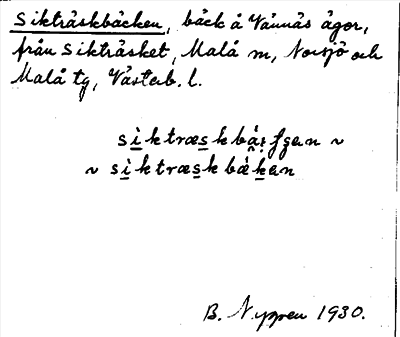 Sikträskbäcken, bäck å Vännäs ägor,
från Sikträsket, Malå sn, Norsjö och
Malå tg, Västerb. l.
siktræskbä́ı̣ʃʃan ~
~ siktræskbǽkan
B. Nygren 1930.